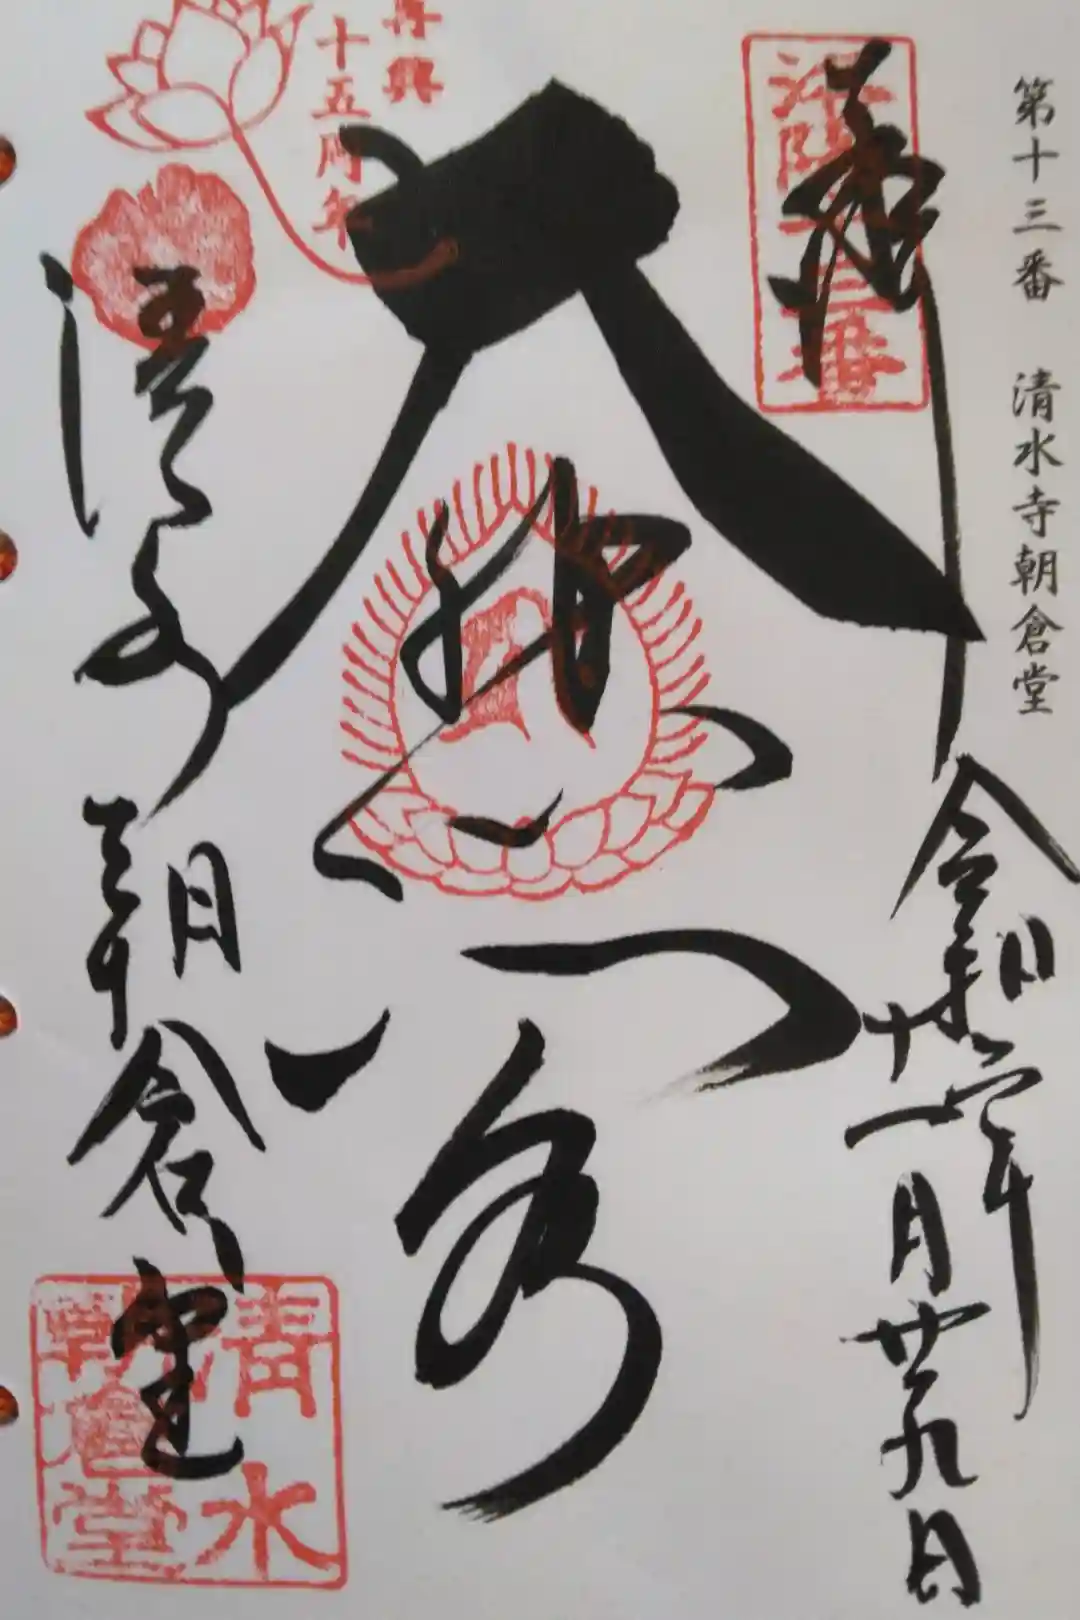 第十三番 清水寺朝倉堂
奉拝
洛陽十三番
令和二年
十一月廿九日
大悲閣
再興
十五周年
清水
朝倉堂
清水
朝倉堂